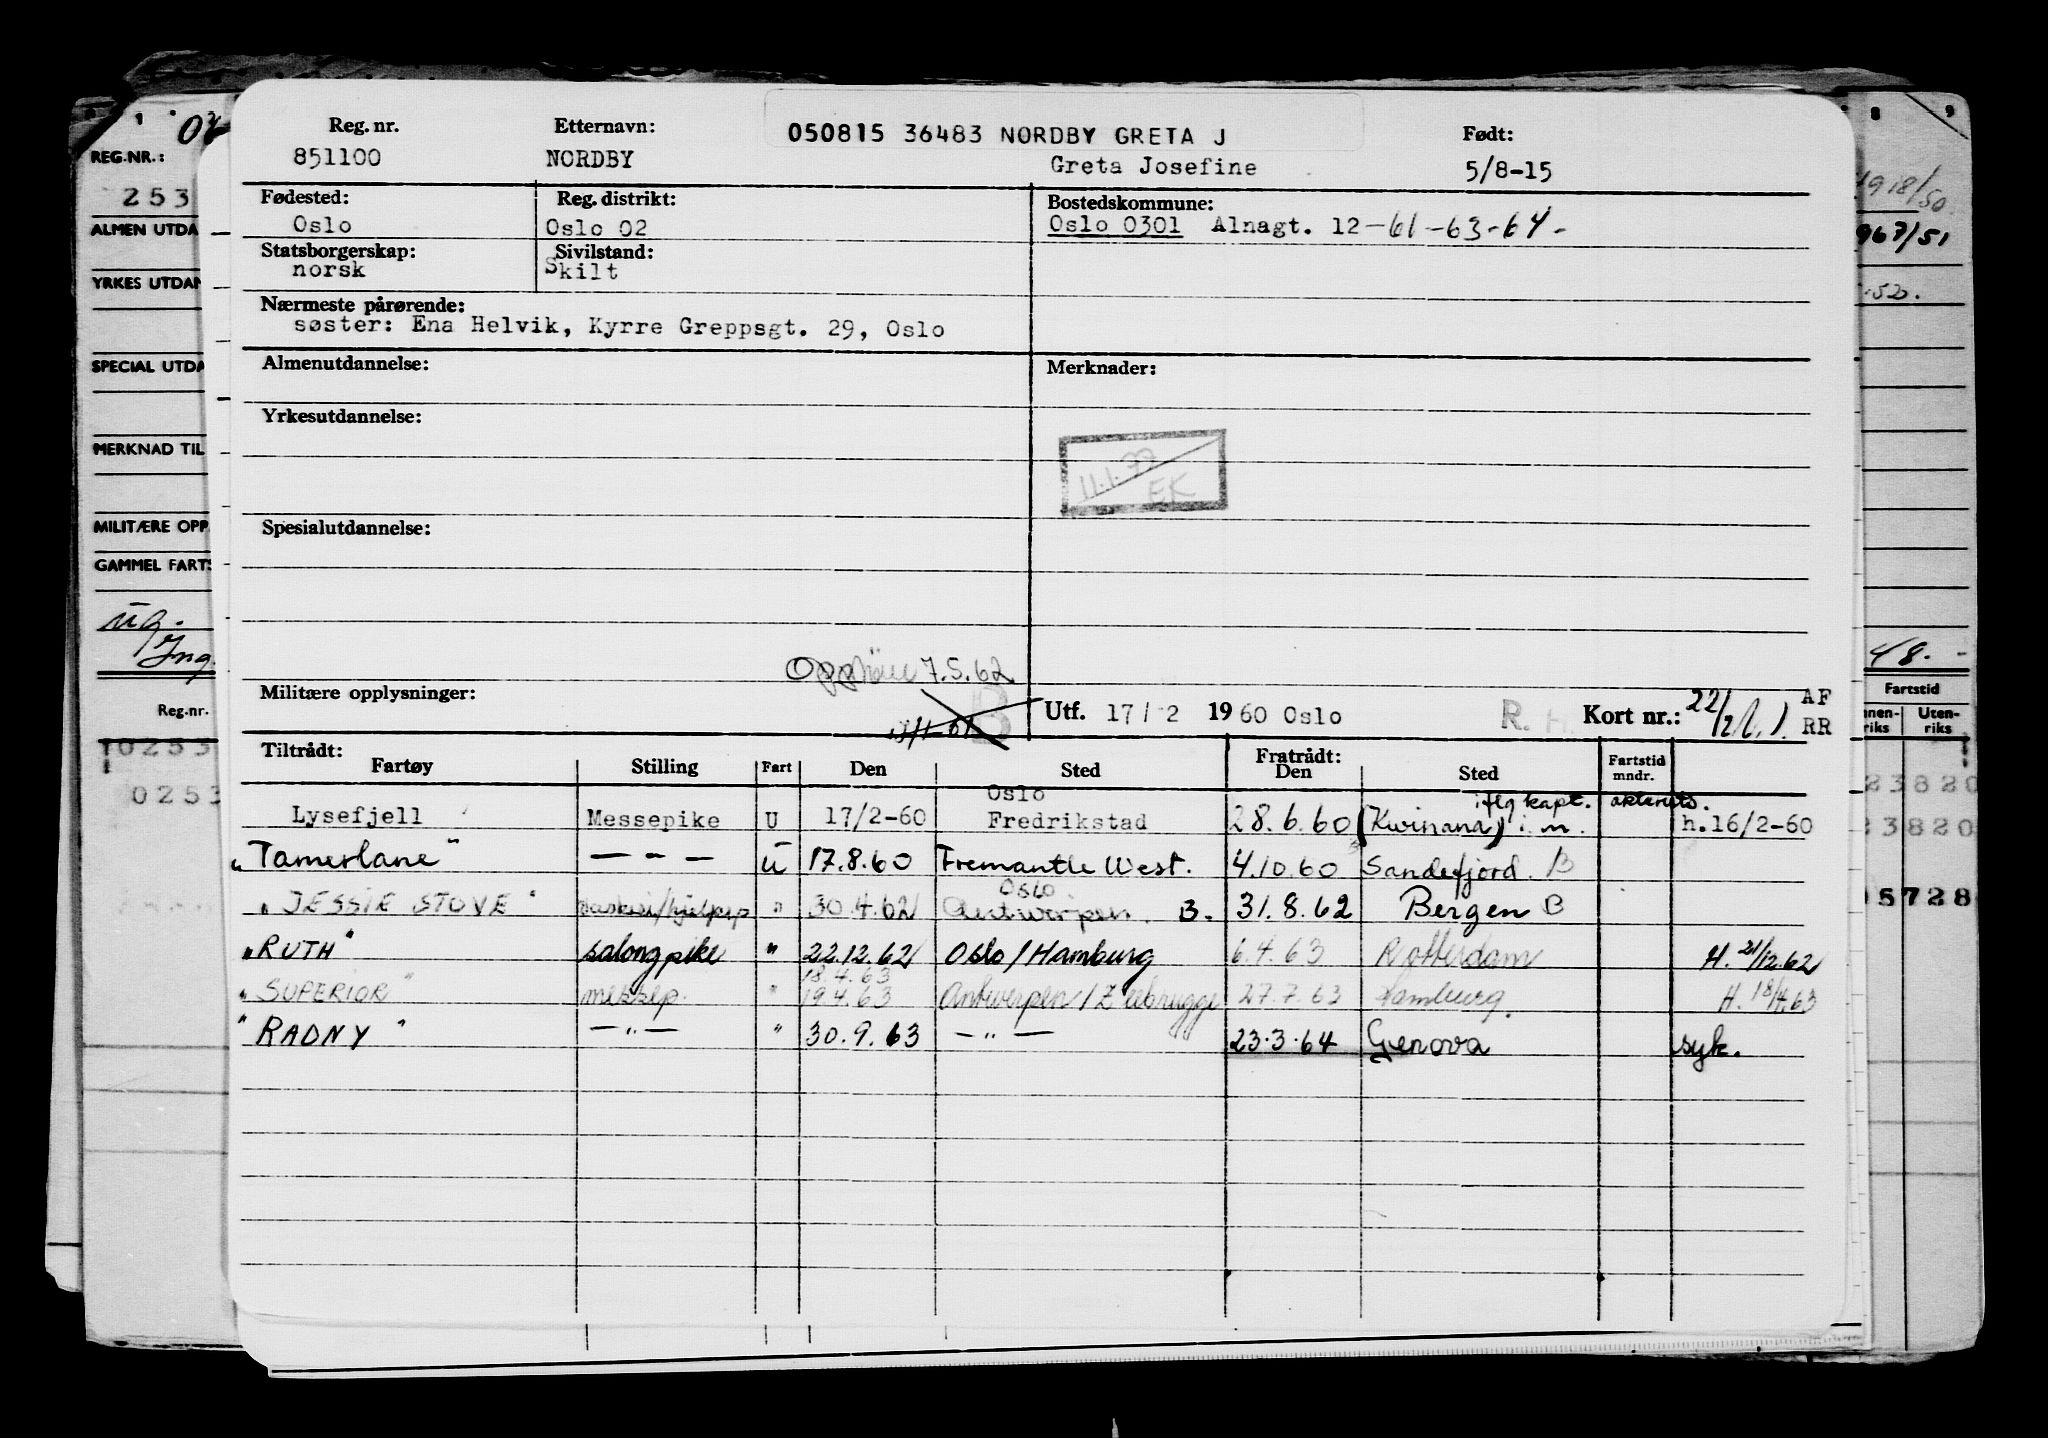 Reg. nr. Etternavn: 050815 36483 NORDBY GRETA J Født:
851100 NORDBY Greta Josefine 5/8-15
Fødested: Reg. distrikt: Bostedskommune:
Oslo Oslo 02 Oslo 0301 Alnagt. 12-61-63-64-
Statsborgerskap: Sivilstand:
norsk Skilt
Nærmeste pårørende:
søster: Ena Helvik, Kyrre Greppsgt. 29, Oslo
Almenutdannelse: Merknader:
Yrkesutdannelse:
11.1.77
EK
Spesialutdannelse:
7.5.62
Militære opplysninger: B Utf. 17/ 2 1960 Oslo R. Kort nr.: AF
RR
Tiltrådt: Fratrådt:
Fartøy Stilling Fart Den Sted Den Sted Fartstid mndr.
Oslo iflg kapt.
Lysefjell Messepike U 17/2-60 Fredrikstad 28.6.60 (Kwinana) i.m. h.16/2-60
"Tamerlane" — " — U 17.8.60 Fremantle West. 4.10.60 Sandefjord. B
Oslo
"JESSIE STOVE" " 30.4.62 Antwerpen. B. 31.8.62 Bergen B
"RUTH" salongpike " 22.12.62 Oslo/Hamburg 6.4.63 Rotterdam H. 21/12.62
18.4.63
"SUPERIOR" messep. " 19.4.63 Antwerpen/Zeebrugge 27.7.63 Hamburg. H. 18/4.63
"RADNY" — " — " 30.9.63 — " — 23.3.64 Genova syk.
REG.NR.:
253
ALMEN UTDA
YRKES UTDAN
SPECIAL UTDA
MERKNAD TIL
MILITÆRE OPP
GAMMEL FARTS
Reg.nr.
0253
0253
8 9
18/50
967/51
48.-
Fartstid
Uten-
riks
23820
23820
5728